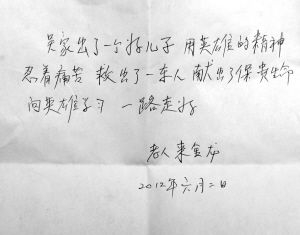 吴家出了一个好儿子 用英雄的精神
忍着痛苦 救出了一车人 献出了保贵生命
向英雄学习 一路走好
老人来金龙
2012年六月二日